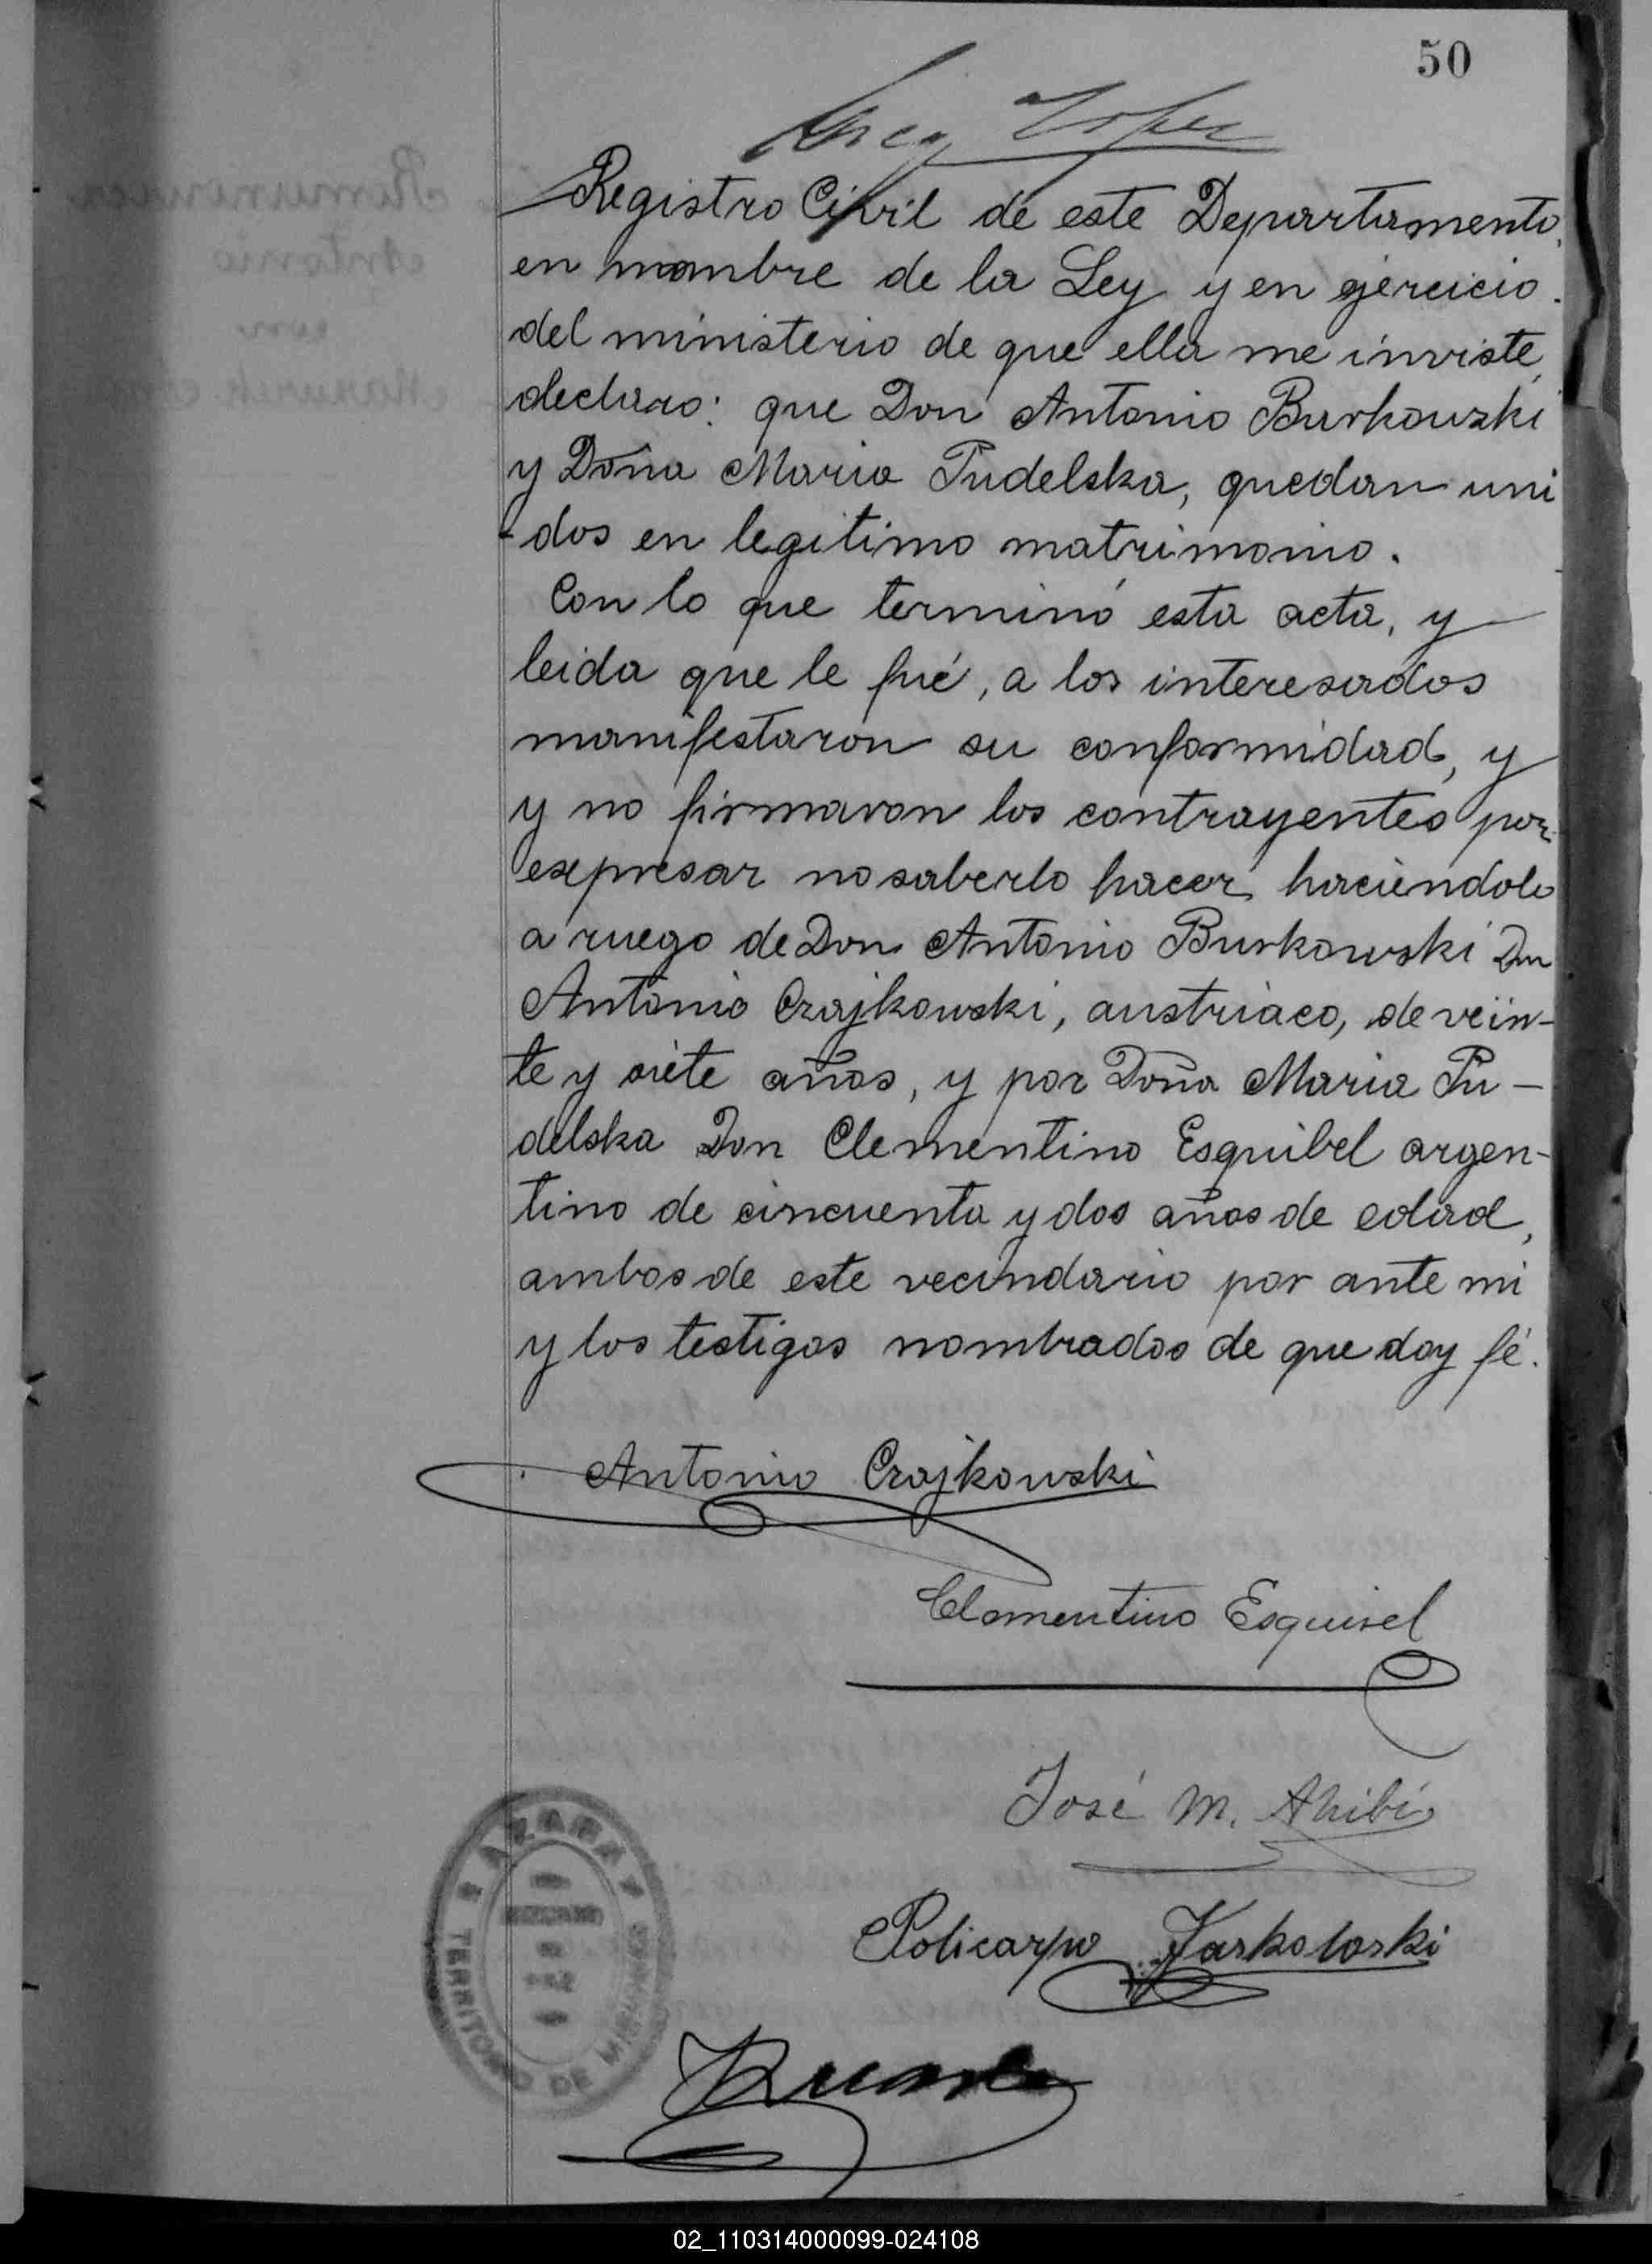 50
Registro Civil de este Departamento,
en nombre de la Ley y en ejercicio
del ministerio de que ella me inviste,
declaro: que Don Antonio Burkowski
y Doña Maria Pudelska, quedan uni
-dos en legitimo matrimonio.
Con lo que terminó esta acta, y
leida que le fué, a los interesados
manifestaron su conformidad, y
y no firmaron los contrayentes por
expresar no saberlo hacer, haciendolo
a ruego de Don Antonio Burkowski Don
Antonio Czajkowski, austriaco, de vein-
te y siete años, y por Doña Maria Pu-
delska Don Clementino Esquibel argen-
tino de cincuenta y dos años de edad,
ambos de este vecindario por ante mi
y los testigos nombrados de que doy fé.
Antonio Czajkowski
Clementino Esquivel
José M.
Policarpo
AZARA
TERRITORIO DE MISIONES
02_110314000099-024108